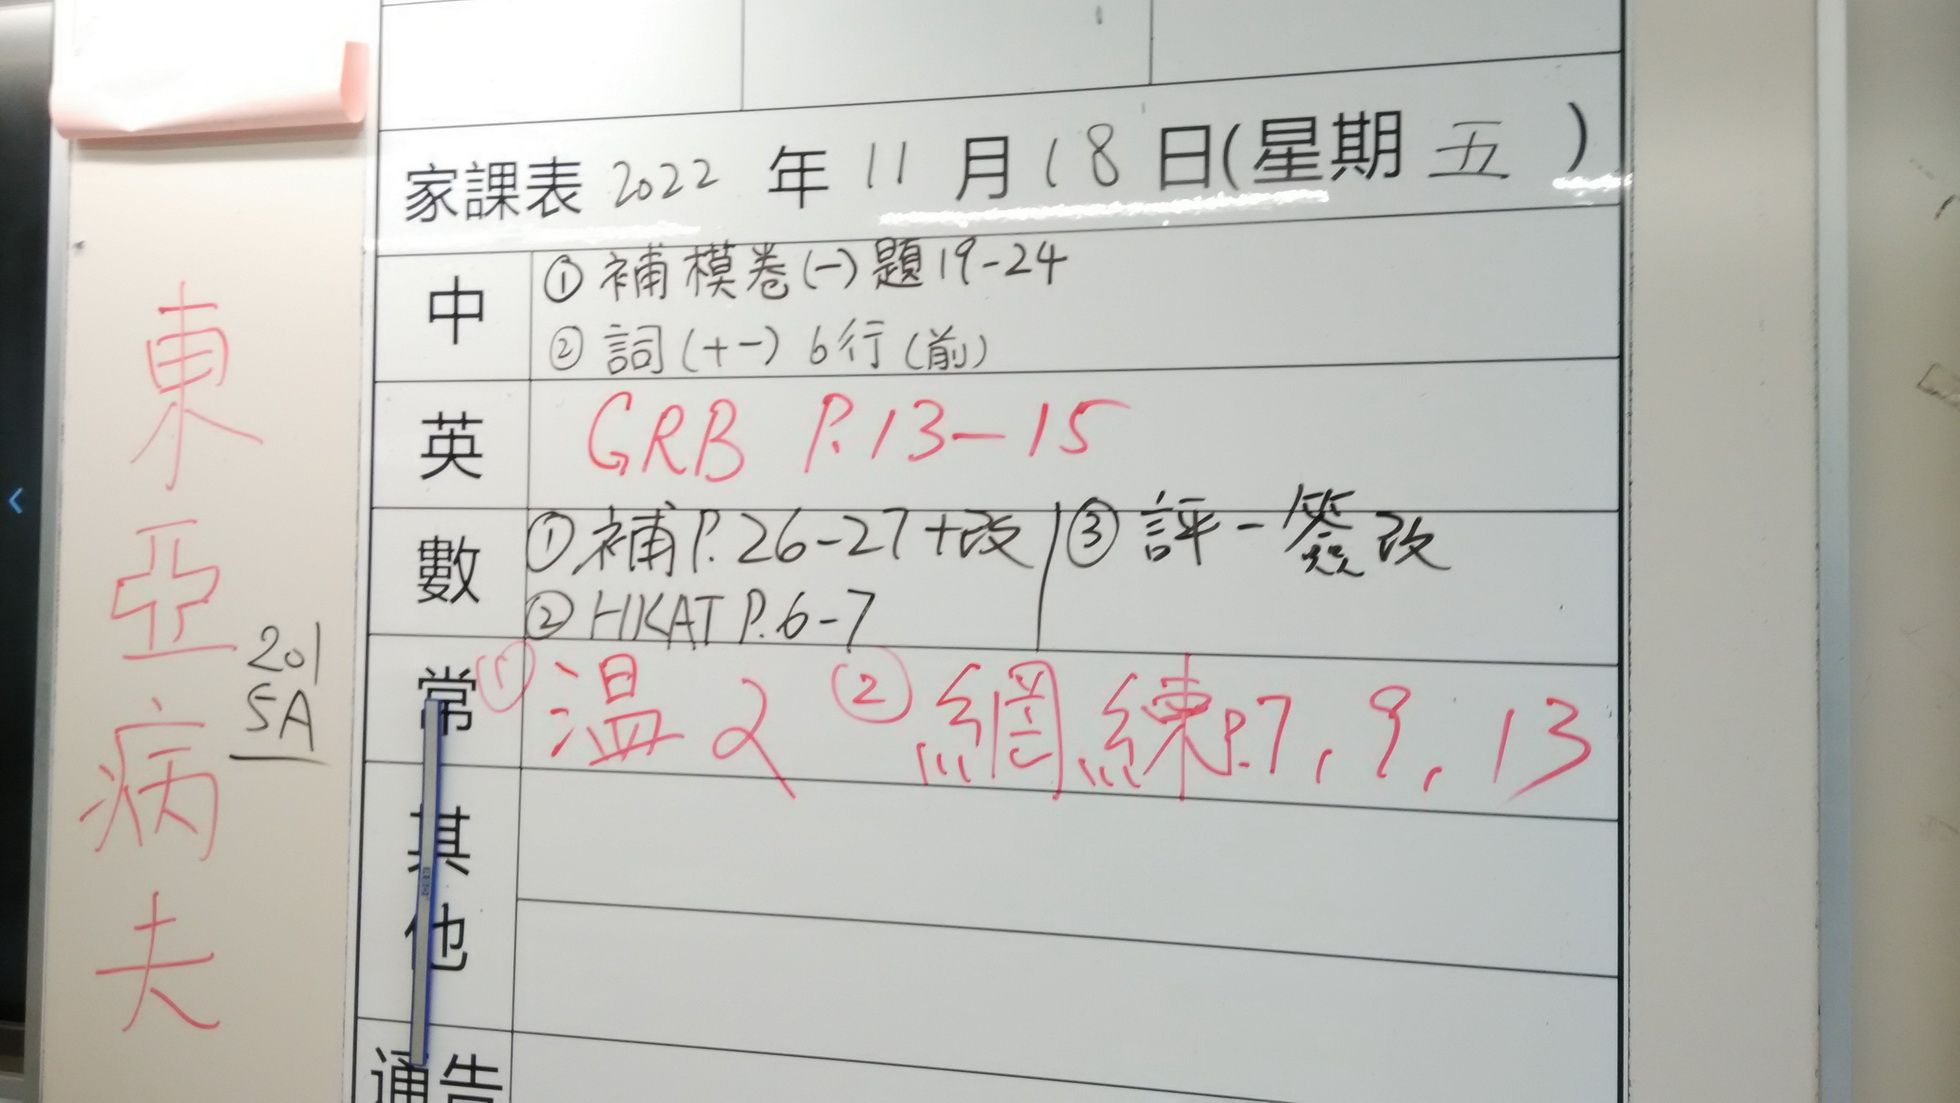 家課表 2022 年 11 月 18 日(星期 五 )
中
① 補模卷(一)題19-24
② 詞(十一) 6行(前)
英
GRB P.13-15
數
① 補P.26-27+改 ③ 評一簽改
② HKAT P.6-7
常
① 温2 ② 網練P.7, 9, 13
其他
通告
東亞病夫
201
5A